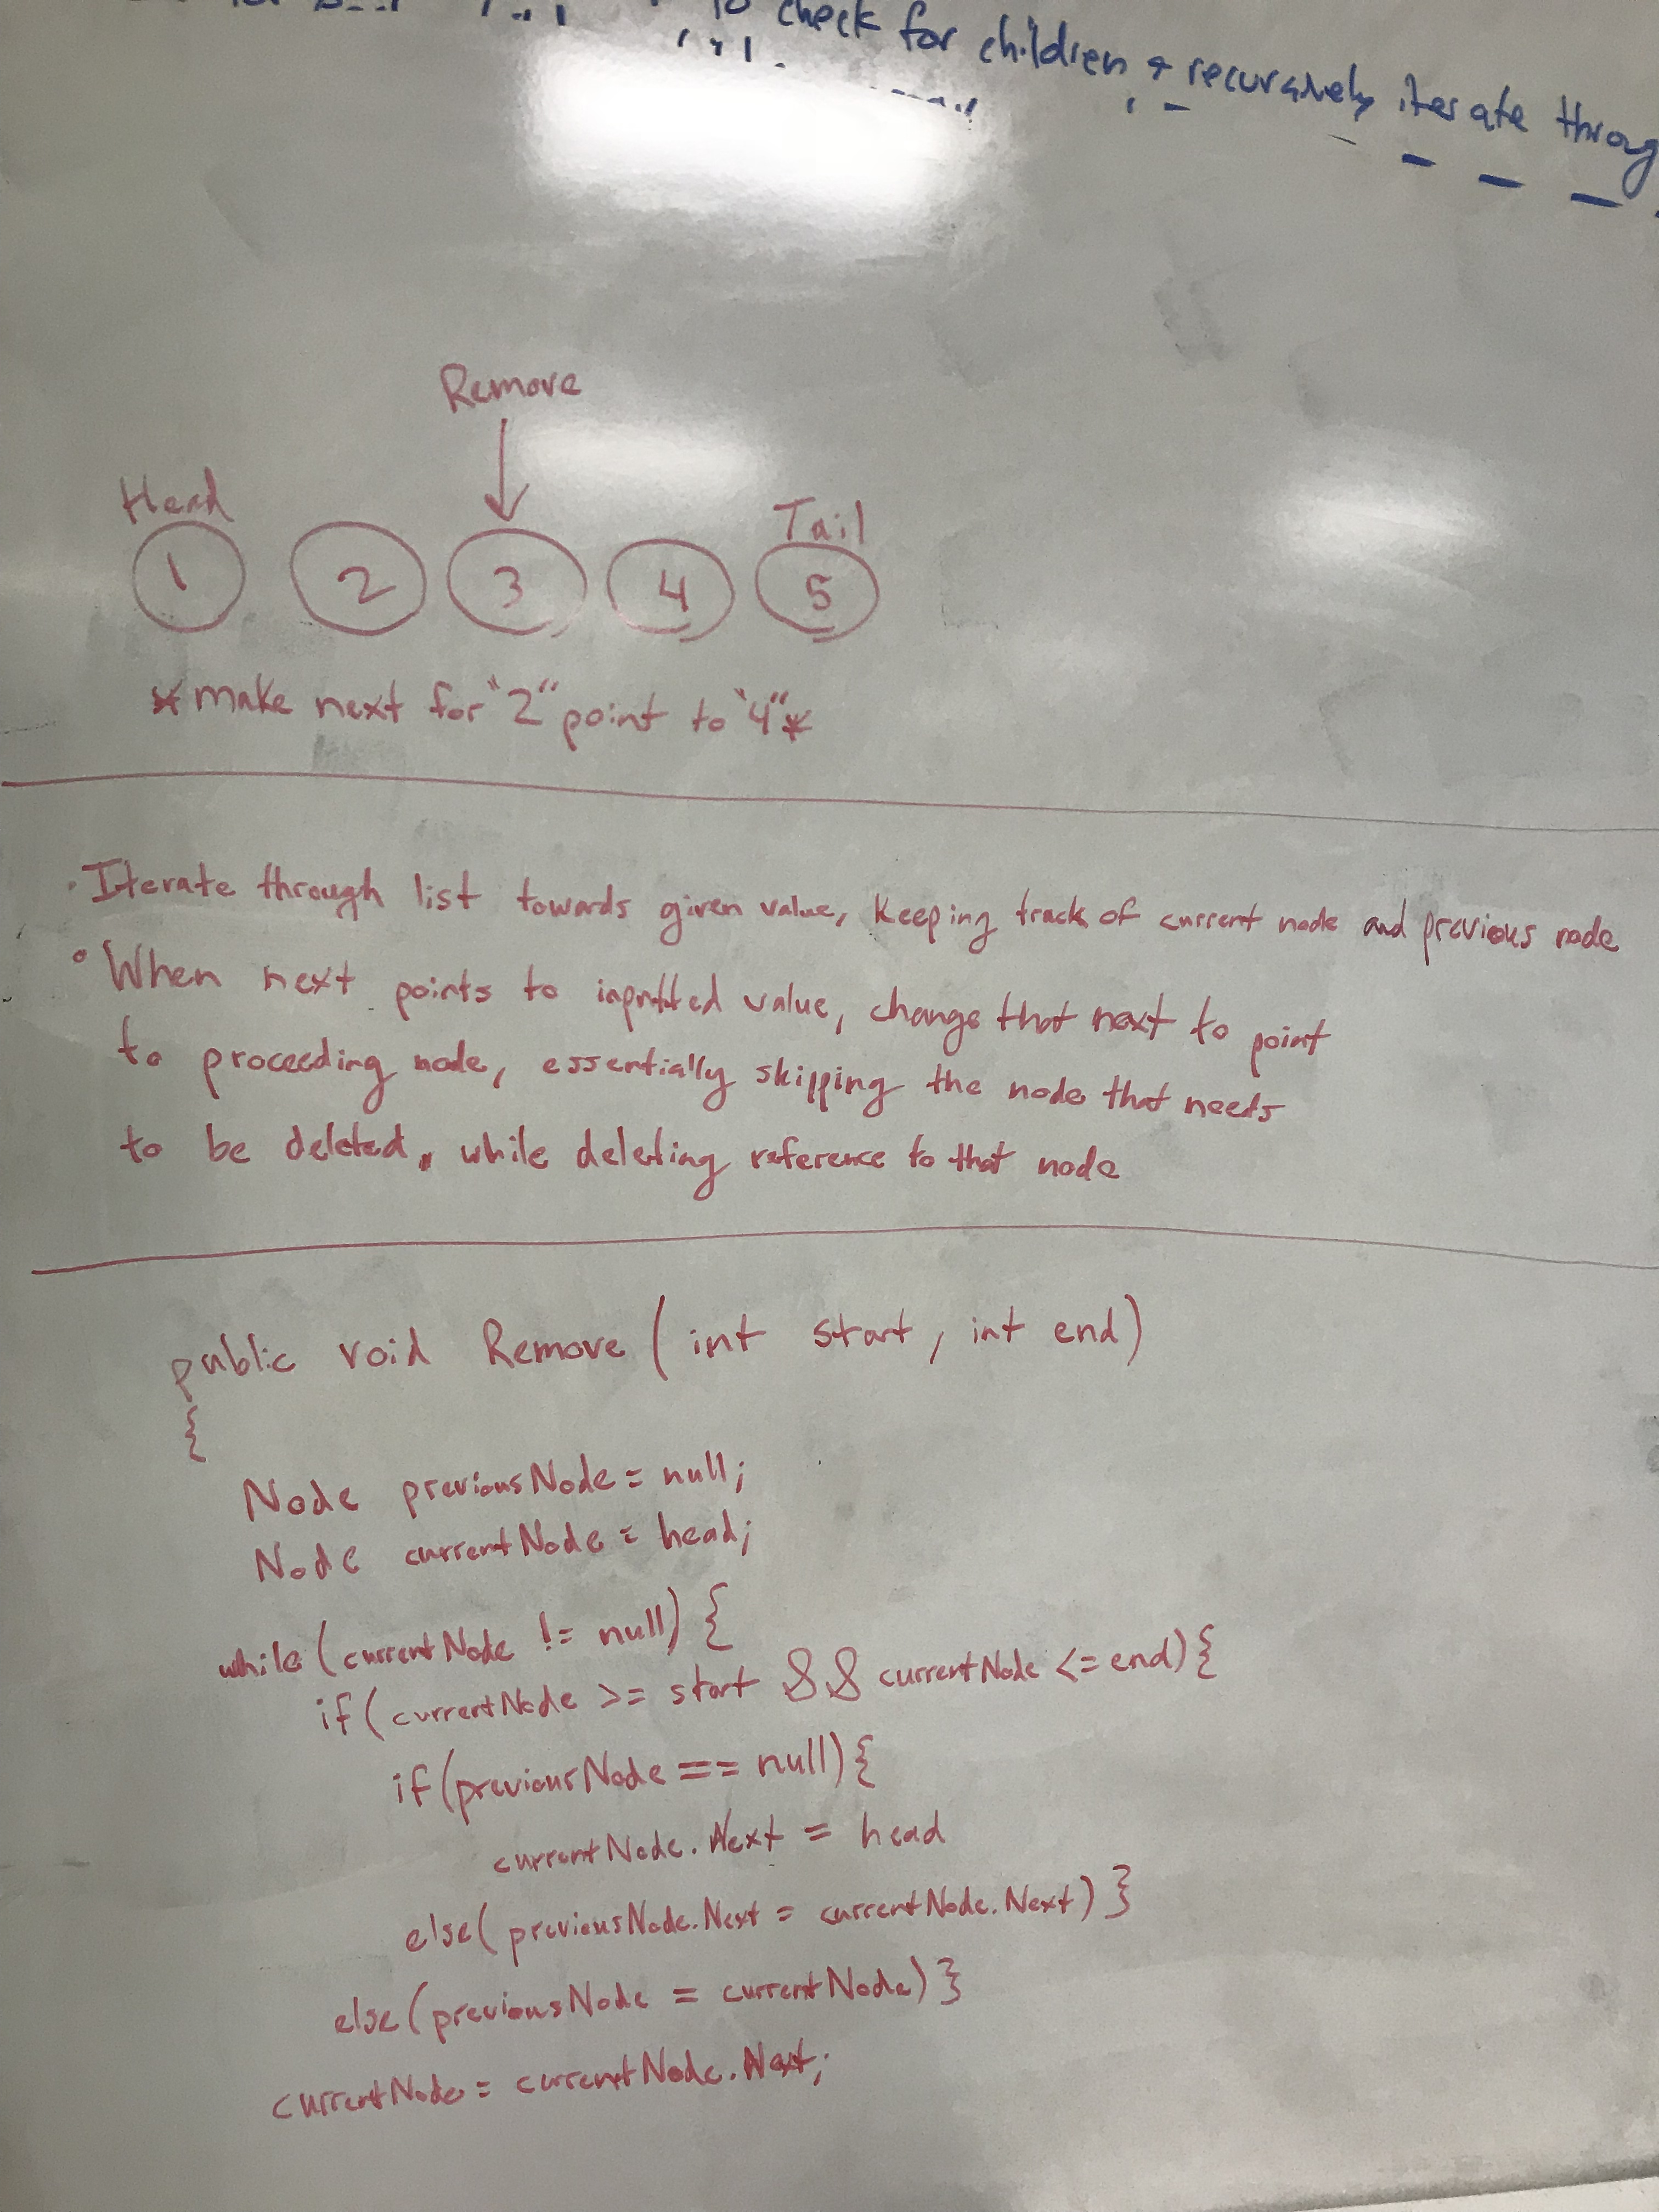 to check for children + recursively iterate throug
Remove
Head
Tail
1 2 3 4 5
* make next for "2" point to "4" *
• Iterate through list towards given value, keeping track of current node and previous node
• When next points to inputted value, change that next to point
to proceeding node, essentially skipping the node that needs
to be deleted, while deleting reference to that node
public void Remove (int start, int end)
{
Node previousNode = null;
Node currentNode = head;
while (currentNode != null) {
if (currentNode >= start && currentNode <= end) {
if (previousNode == null) {
currentNode.Next = head
else( previousNode.Next = currentNode.Next) }
else (previousNode = currentNode) }
currentNode = currentNode.Next;